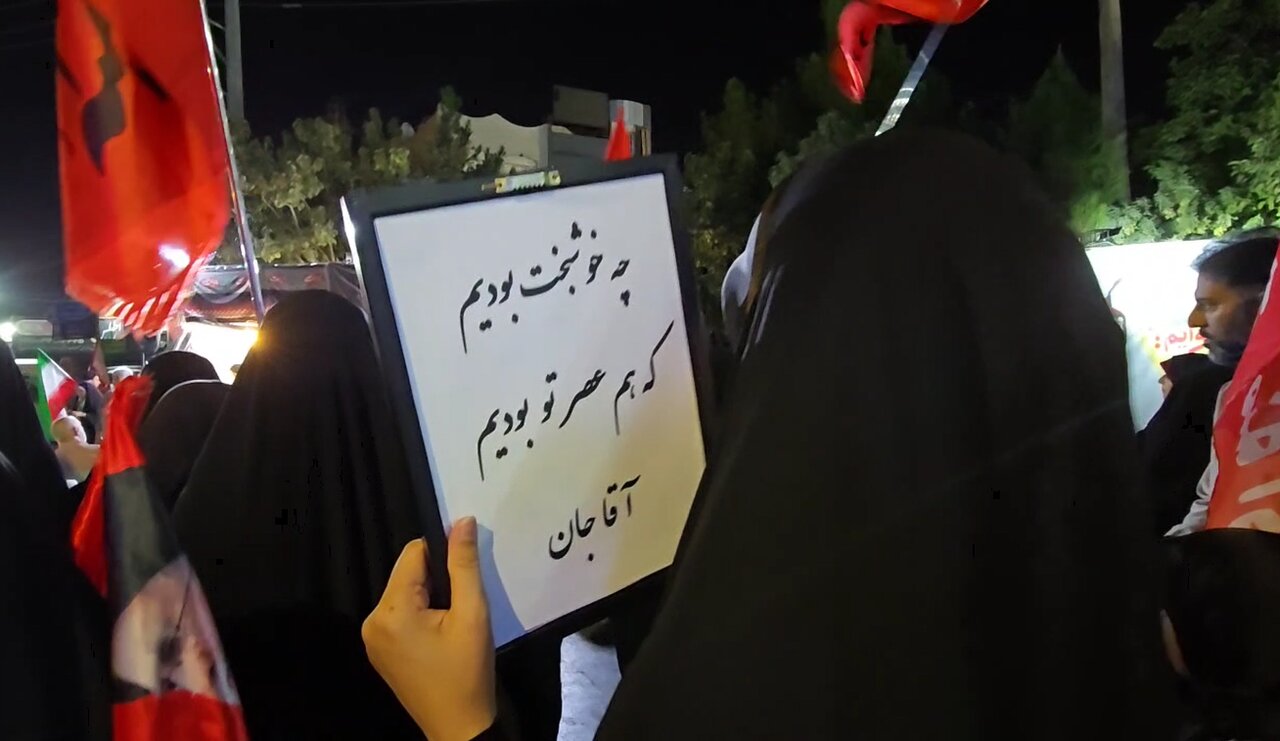 چه خوشبخت بودیم
که هم عصر تو بودیم
آقا جان